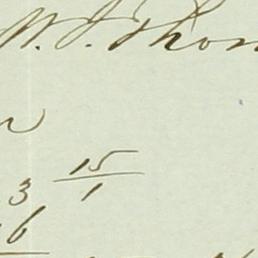 W. J. Thom
15
3 1
6